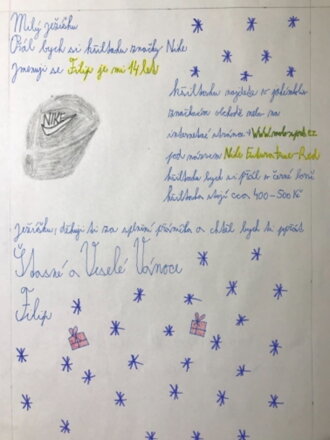 Milý ježíšku
Přál bych si kšiltovku značky Nike
Jmenuji se Filip je mi 14 let
kšiltovku najdete v
značkovém obchodě nebo na
internetové stránce →
pod názvem Nike Futura True-Red
kšiltovku bych si přál v černé barvě
kšiltovka stojí cca 400-500 Kč
NIKE
ježíšku, děkuji ti za splnění přáníčka a chtěl bych ti popřát
Šťastné a Veselé Vánoce
Filip